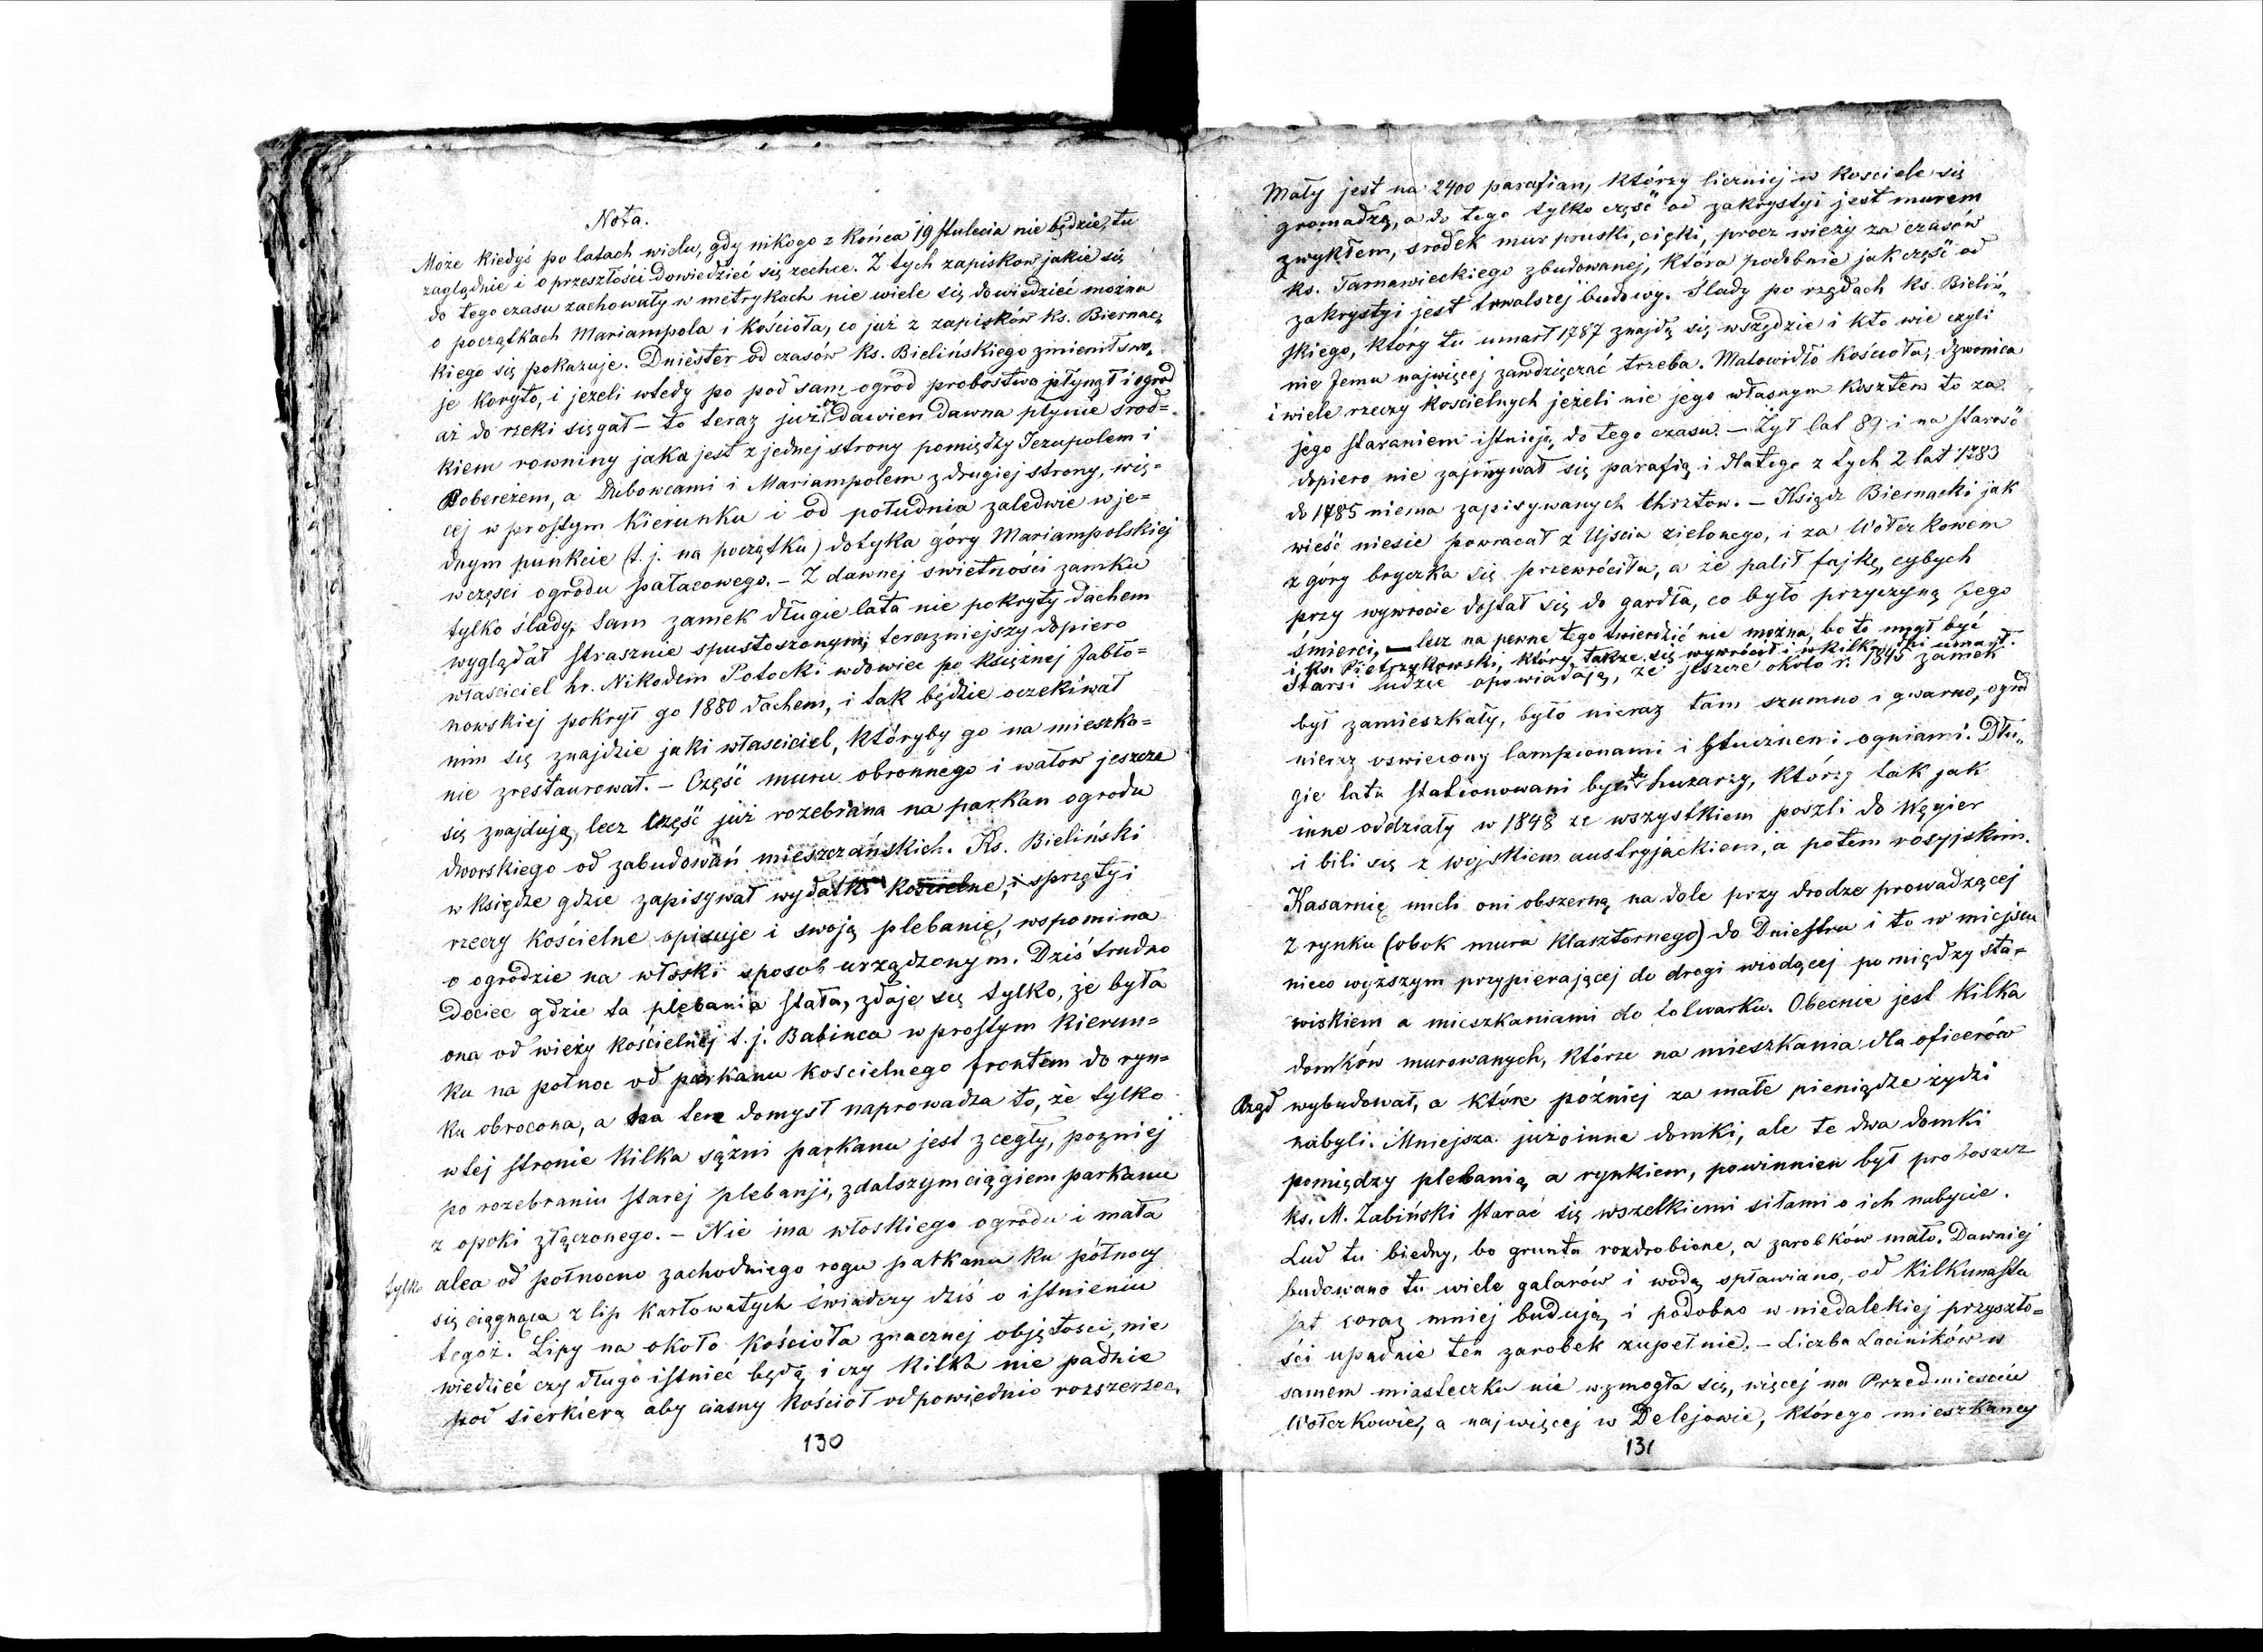 Nota.
Może kiedyś po latach wielu, gdy nikogo z końca 19 stulecia nie będzie, tu
zaglądnie i o przeszłości dowiedzieć się zechce. Z tych zapiskow jakie się
do tego czasu zachowały w metrykach nie wiele się dowiedzieć można
o początkach Mariampola i kościoła, co już z zapisków ks. Biernac„
kiego się pokazuje. Dniester od czasów ks. Bielińskiego zmienił swo„
je koryto, i jeżeli wtedy po pod sam ogród probostwa płynął i ogrod
aż do rzeki sięgał – to teraz już od dawien dawna płynie srod=
kiem rowniny jaka jest z jednej strony pomiędzy Jezupolem i
Pobereżem, a Dubowcami i Mariampolem z drugiej strony, wię=
cej w prostym kierunku i od południa zaledwie w je=
dnym punkcie (t. j. na początku) dotyka góry Mariampolskiej
w częsci ogrodu pałacowego. – Z dawnej swietności zamku
tylko ślady, sam zamek długie lata nie pokryty dachem
wyglądał strasznie spustoszonym, terazniejszy dopiero
własciciel hr. Nikodem Potocki wdowiec po księżnej Jabło=
nowskiej pokrył go 1880 dachem, i tak będzie oczekiwał
nim się znajdzie jaki własciciel, któryby go na mieszka=
nie zrestaurował. – Część muru obronnego i wałow jeszcze
się znajdują, lecz część już rozebrana na parkan ogrodu
dworskiego od zabudowań mieszczańskich. Ks. Bieliński
w księdze gdzie zapisywał wydatki kościelne, i sprzęty i
rzeczy kościelne opisuje i swoją plebanię, wspomina
o ogrodzie na włoski sposob urządzonym. Dziś trudno
dociec gdzie ta plebania stała, zdaje się tylko, że była
ona od wieży kościelnej t. j. Babinca w prostym kierun=
ku na połnoc od parkanu koscielnego frontem do ryn=
ku obrocona, a na ten domysł naprowadza to, że tylko
w tej stronie kilka sążni parkanu jest z cegły, pozniej
po rozebraniu starej plebanji, z dalszym ciągiem parkanu
z opoki złączonego. – Nie ma włoskiego ogrodu i mała
tylko alea od połnocno zachodniego rogu parkanu ku północy
się ciągnąca z lip karłowatych świadczy dziś o istnieniu
tegoż. Lipy na około kościoła znacznej objętosci, nie
wiedzieć czy długo istnieć będą i czy kilka nie padnie
pod sierkierą aby ciasny kościoł odpowiednio rozszerzec,
130
Mały jest na 2400 parafian, którzy liczniej w kosciele się
gromadzą, a do tego tylko część od zakrystyi jest murem
zwykłem, srodek mur pruski, cięki, procz wieży za czasów
ks. Tarnawieckiego zbudowanej, która podobnie jak część od
zakrystyi jest trwalszej budowy. Slady po rządach ks. Bieliń„
skiego, który tu umarł 1787 znajdą się wszędzie i kto wie czyli
nie Jemu najwięcej zawdzięczać trzeba. Malowidło kościoła, dzwonica
i wiele rzeczy koscielnych jeżeli nie jego własnym kosztem to za
jego staraniem istnieje, do tego czasu. – Żył lat 89 i na starość
dopiero nie zajmywał się parafią i dlatego z tych 2 lat 1783
do 1785 niema zapisywanych chrztow. – Ksiądz Biernacki jak
wieść niesie powracał z Ujscia zielonego, i za Wołczkowem
z góry bryczka się przewróciła, a że palił fajkę, cybych
przy wywrocie dostał się do gardła, co było przyczyną Jego
śmierci, lecz na pewne tego twierdzić nie można, bo to mógł być
i ks. Pietrzykowski, który także się wywrócił i w kilka dni umarł.
Starsi ludzie opowiadają, że jeszcze około r. 1845 zamek
był zamieszkały, było nieraz tam szumno i gwarno, ogrod
nieraz oswiecony lampionami i sztucznemi ogniami. Dłu„
gie lata stacionowani byli tu huzarzy, którzy tak jak
inne oddziały w 1848 ze wszystkiem poszli do Węgier
i bili się z wojskiem austryjackiem, a potem rosyjskim.
Kasarnię mieli oni obszerną na dole przy drodze prowadzącej
z rynku (obok mura klasztornego) do Dniestru i to w miejscu
nieco wyższym przypierającej do drogi wiodącej pomiędzy sta=
wiskiem a mieszkaniami do folwarku. Obecnie jest kilka
domków murowanych, które na mieszkania dla oficerów
Rząd wybudował, a które później za małe pieniądze żydzi
nabyli. Mniejsza już o inne domki, ale te dwa domki
pomiędzy plebanią a rynkiem, powinnien był proboszcz
ks. M. Żabiński starać się wszelkiemi siłami o ich nabycie.
Lud tu biedny, bo grunta rozdrobione, a zarobków mało. Dawniej
budowano tu wiele galarów i wodą spławiano, od kilkunastu
lat coraz mniej budują i podobno w niedalekiej przyszło=
ści upadnie ten zarobek zupełnie. – Liczba Łaciników w
samem miasteczku nie wzmogła się, więcej na Przedmiesciu
Wołczkowie, a najwięcej w Delejowie, którego mieszkancy
131